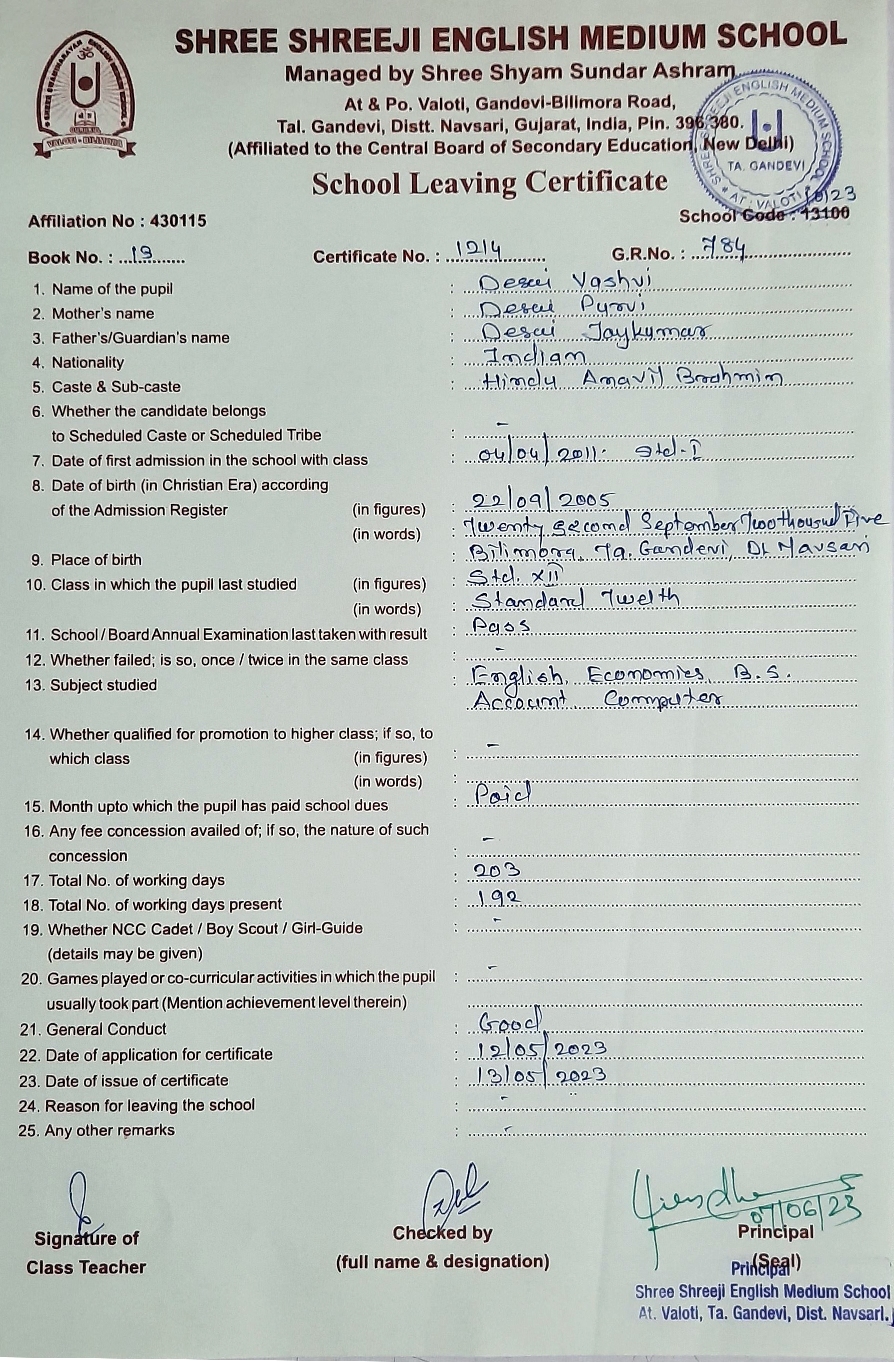 SHREE SHREEJI ENGLISH MEDIUM SCHOOL
Managed by Shree Shyam Sundar Ashram
At & Po. Valoti, Gandevi-Bilimora Road,
Tal. Gandevi, Distt. Navsari, Gujarat, India, Pin. 396 380.
(Affiliated to the Central Board of Secondary Education, New Delhi)
TA. GANDEVI
School Leaving Certificate
Affiliation No : 430115 School Code : 13100
Book No. : 19 Certificate No. : 1214 G.R.No. : 784
1. Name of the pupil : Desai Vashvi
2. Mother's name : Desai Purvi
3. Father's/Guardian's name : Desai Jaykumar
4. Nationality : Indian
5. Caste & Sub-caste : Hindu Anavil Brahmin
6. Whether the candidate belongs
to Scheduled Caste or Scheduled Tribe : -
7. Date of first admission in the school with class : 04/04/2011. Std-I
8. Date of birth (in Christian Era) according
of the Admission Register (in figures) : 22/09/2005
(in words) : Twenty second September Twothousand Five
9. Place of birth : Bilimora, Ta. Gandevi, Dt Navsari
10. Class in which the pupil last studied (in figures) : Std. XII
(in words) : Standard Twelth
11. School / Board Annual Examination last taken with result : Pass
12. Whether failed; is so, once / twice in the same class : -
13. Subject studied : English, Economics, B.S.
Account Computer
14. Whether qualified for promotion to higher class; if so, to
which class (in figures) : -
(in words) :
15. Month upto which the pupil has paid school dues : Paid
16. Any fee concession availed of; if so, the nature of such
concession : -
17. Total No. of working days : 203
18. Total No. of working days present : 192
19. Whether NCC Cadet / Boy Scout / Girl-Guide : -
(details may be given)
20. Games played or co-curricular activities in which the pupil : -
usually took part (Mention achievement level therein)
21. General Conduct : Good
22. Date of application for certificate : 12/05/2023
23. Date of issue of certificate : 13/05/2023
24. Reason for leaving the school : -
25. Any other remarks : -
07/06/23
Signature of Checked by Principal
Class Teacher (full name & designation) (Seal)
Principal
Shree Shreeji English Medium School
At. Valoti, Ta. Gandevi, Dist. Navsari.